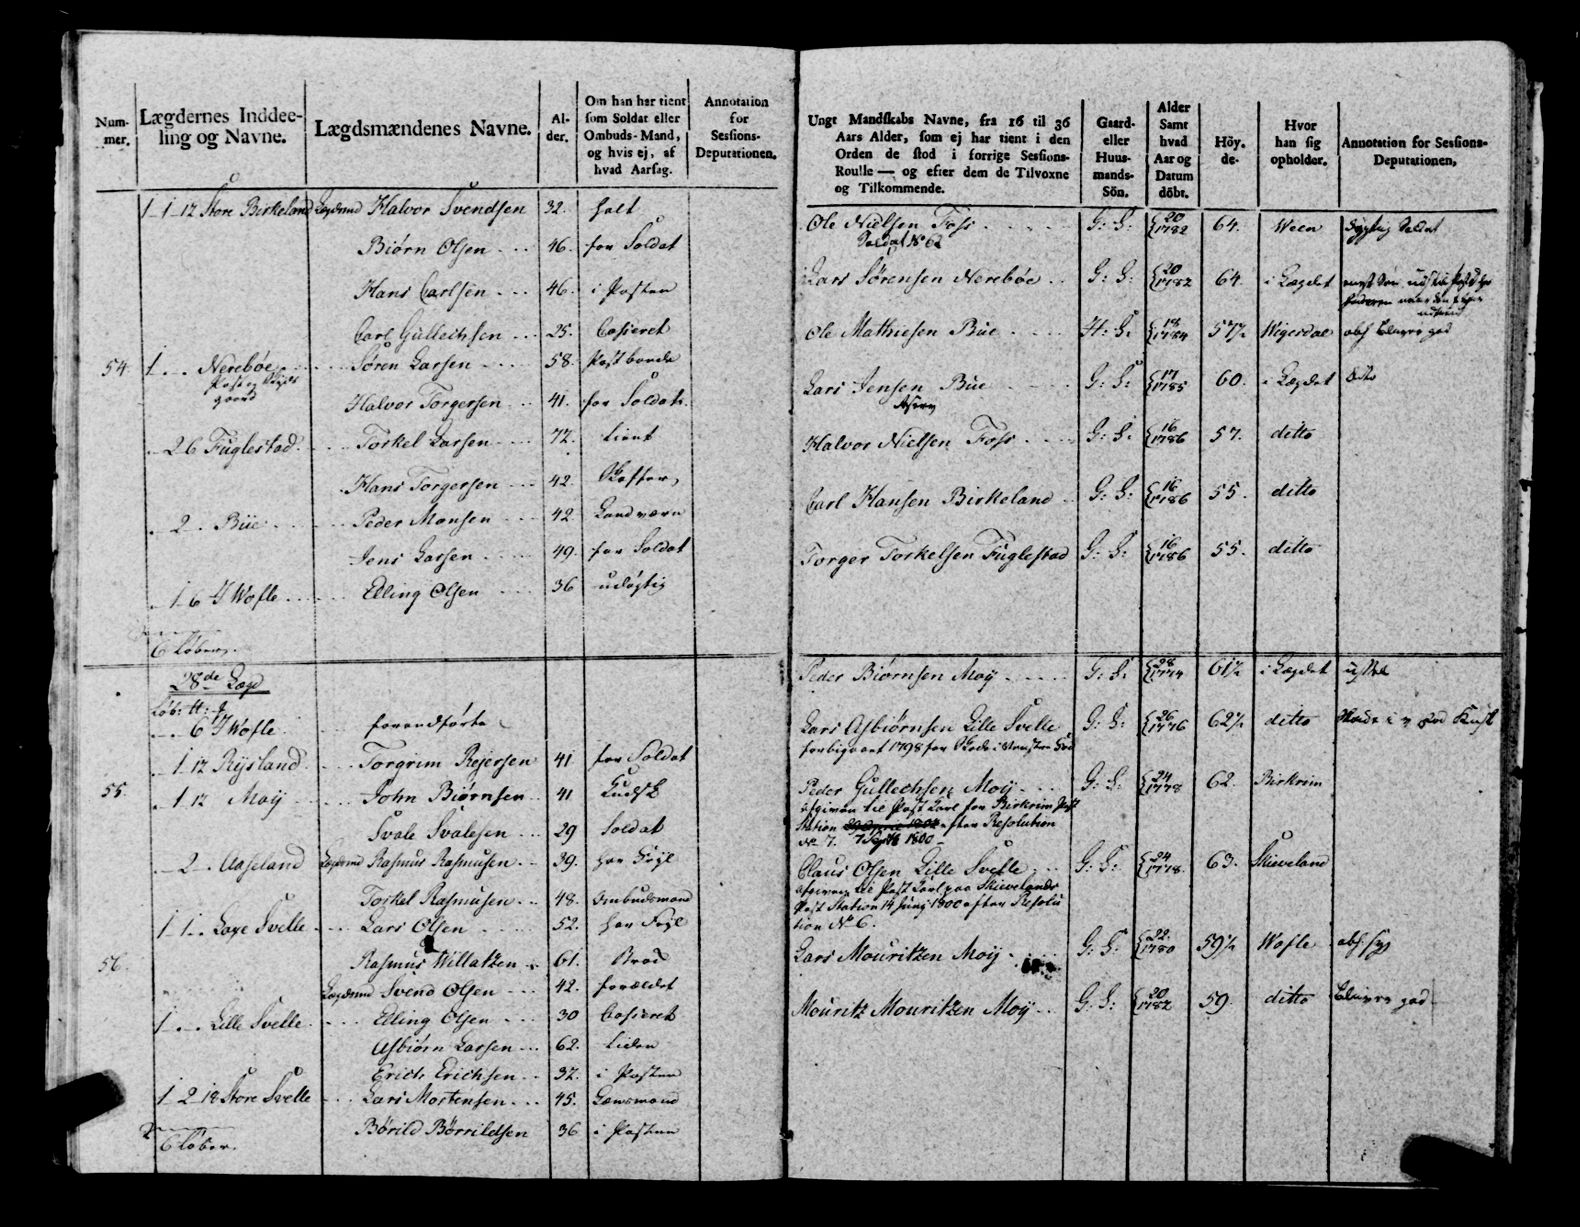 Num-
mer.
Lægdernes Inddee-
ling og Navne.
Lægdsmændenes Navne.
Al-
der.
Om han har tient
som Soldat eller
Ombuds-Mand,
og hvis ej, af
hvad Aarsag.
Annotation
for
Sessions-
Deputationen.
1 - 1 - 12 Store Birkeland Lægdsmd Halvor Svendsen 32. halt
Biørn Olsen 46. for Soldat
Hans Carlsen 46. i Posten
Carl Gullechsen 25. Casseret
54. 1 Nereböe Søren Larsen 58. Postbonde
gaard
Halvor Torgersen 41. for Soldat
2 6 Fuglestad Torkel Larsen 72. tient
Hans Torgersen 42. Skaffer
2 Büe Peder Monsen 42. Landværn
Jens Larsen 49. for Soldat
1 6 Wofle Elling Olsen 36 udögtig
6 Löber.
28de Lægd
Löb: tt:
6 Wofle foranførte
1 12 Rysland Torgrim Rejersen 41 for Soldat
55. 1 12 Moÿ John Biørnsen 41
Svale Svalesen 29 Soldat
2 Aaseland Lægdsmd Rasmus Rasmusen 39. har
Torkel Rasmusen 48. Ombudsmand
1 1 Lage Svelle Lars Olsen 52. har
56. Rasmus Willatzen 61.
Lægdsmd Svend Olsen 42. forældet
1 Lille Svelle Elling Olsen 30 Casseret
Asbiørn Larsen 62. liden
Erich Erichsen 32. i Posten
1 2 18 Store Svelle Lars Mortensen 45. Lænsmand
Börild Börrildsen 36 i Posten
6 Löber.
Ungt Mandskabs Navne, fra 16 til 36
Aars Alder, som ej har tient i den
Orden de stod i forrige Sessions-
Roulle — og efter dem de Tilvoxne
og Tilkommende.
Gaard-
eller
Huus-
mands-
Sön.
Alder
Samt
hvad
Aar og
Datum
döbt.
Höy-
de-
Hvor
han sig
opholder.
Annotation for Sessions-
Deputationen.
Ole Nielsen Foss G: S: 20 1782 64. Ween dygtig Soldat
Soldat No 62
Lars Sørensen Nereböe G: S: 20 1782 64. i Lægdet
Ole Mathiesen Büe H: S: 18 1784 57½ Wigesdal obs bliver god
Lars Jensen Büe G: S: 17 1785 60. i Lægdet dito
Halvor Nielsen Foss G: S: 16 1786 57. ditto
Carl Hansen Birkeland G: S: 16 1786 55. ditto
Torger Torkelsen Fuglestad G: S: 16 1786 55. ditto
Peder Biørnsen Moÿ G: S: 28 1774 61½ i Lægdet
Lars Asbiørnsen Lille Svelle G: S: 26 1776 62½ ditto
forbigaaet 1798 for Skade i venstre
Peder Gullechsen Moÿ G: S: 24 1778 62. Birkrim
afgiven til Post Karl for Birkrim Post
Station efter Resolution
No 7. 7 Septb 1800
Claus Olsen Lille Svelle G: S: 24 1778. 63. Skieveland
afgiven til Post Karl paa Skievelands
Post Station 14 Junij 1800 efter Resolu
tion No 6.
Lars Mouritzen Moÿ G: S: 22 1780 59½ Wofle
Mouritz Mouritzen Moÿ G: S: 20 1782 59. ditto bliver god